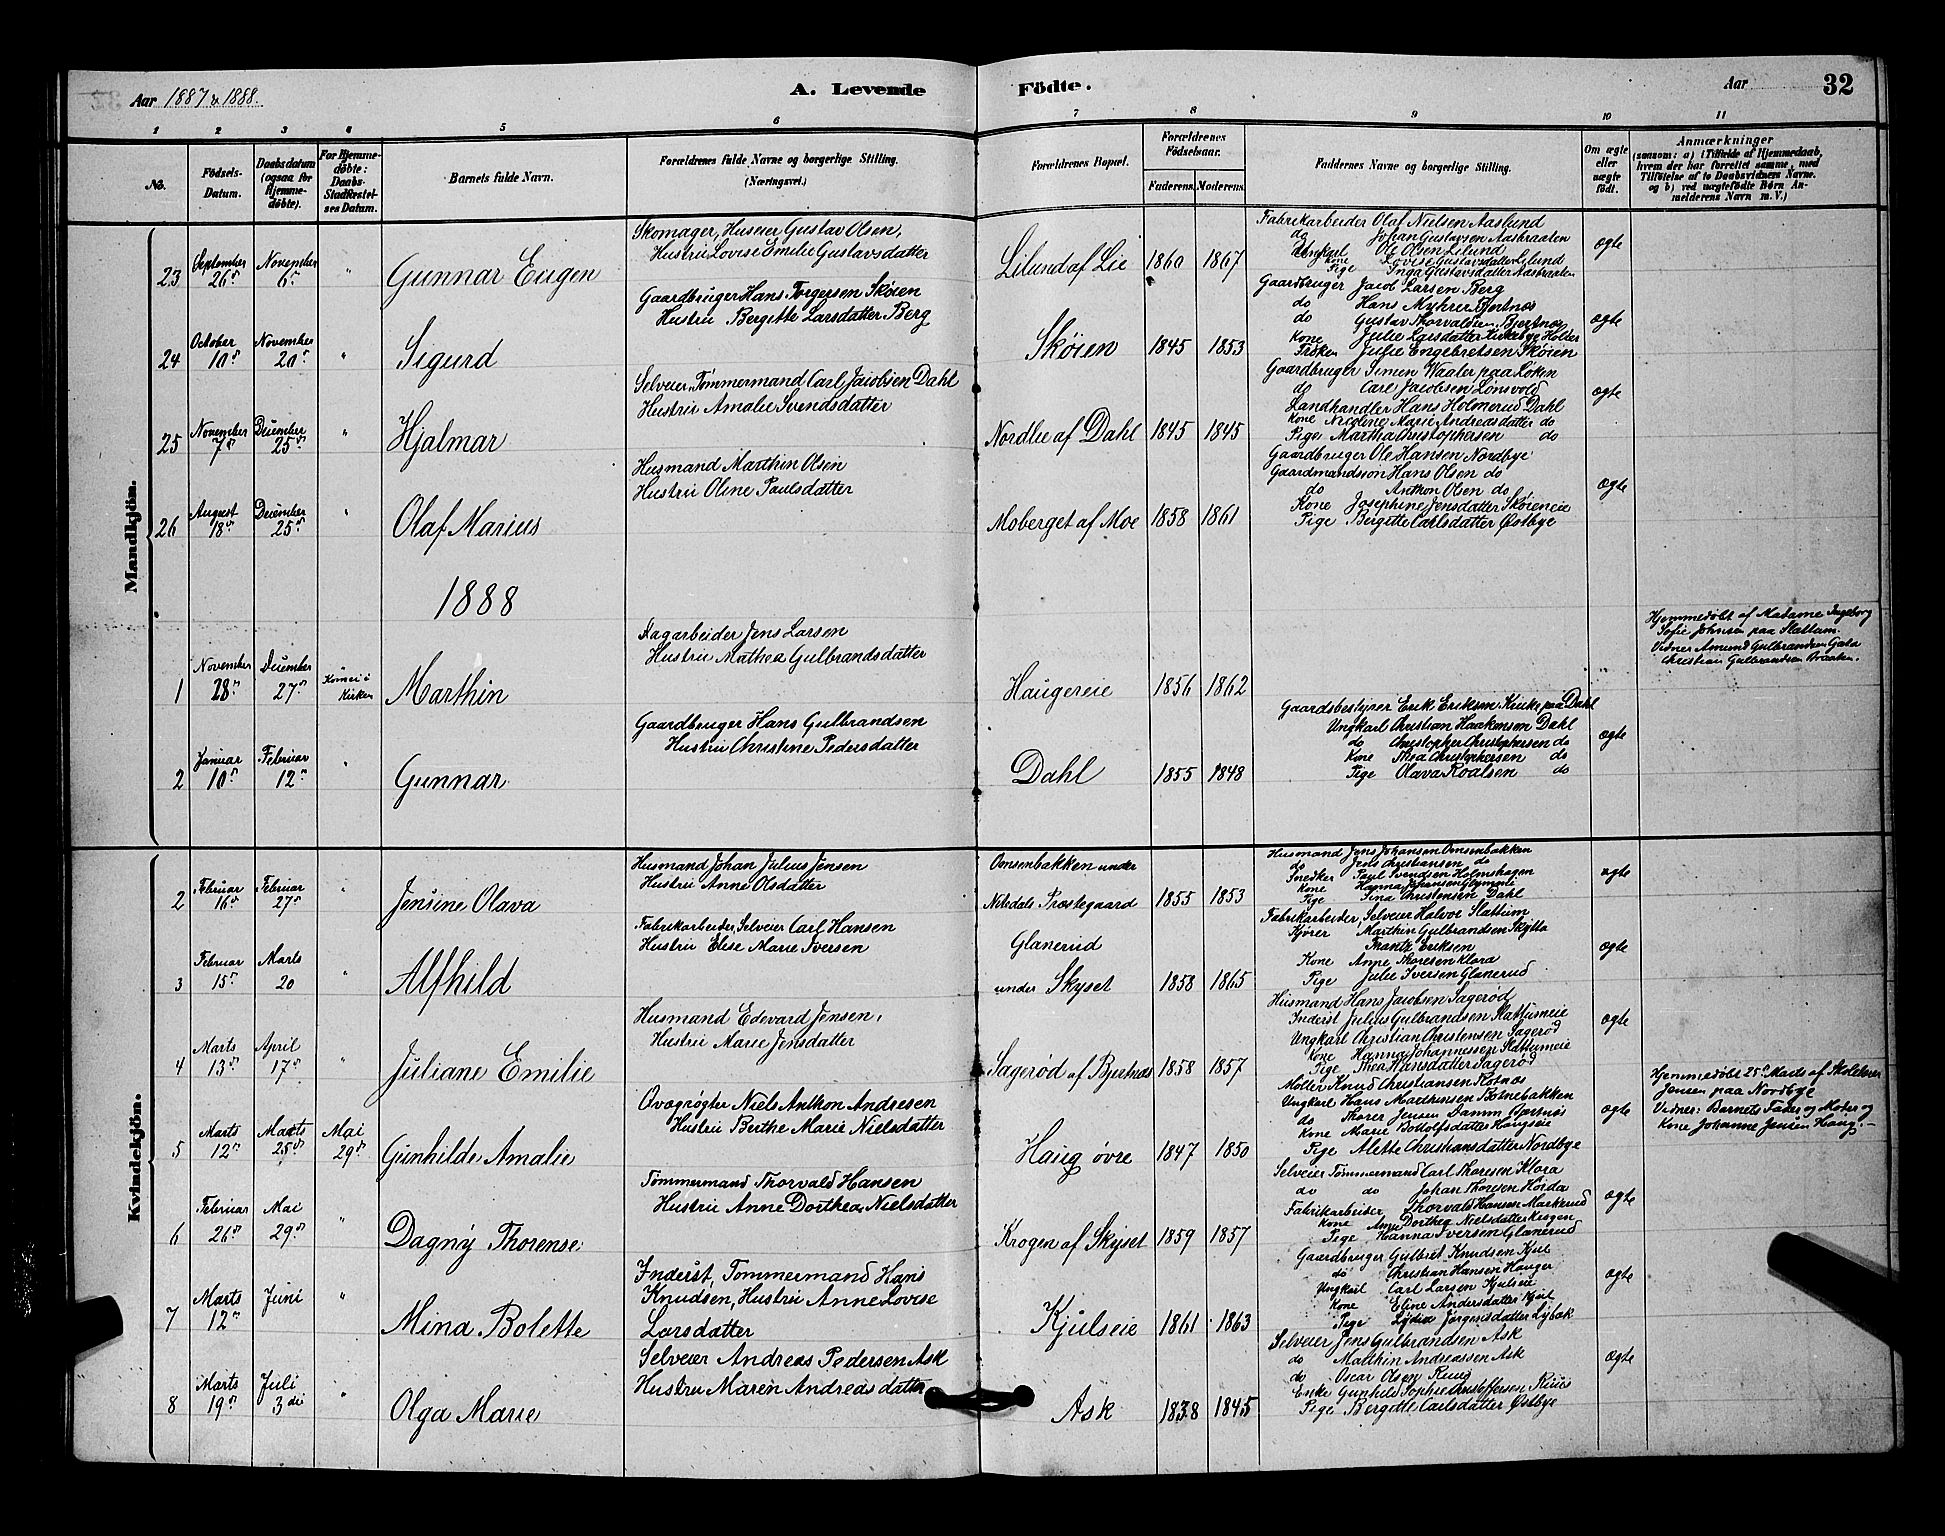 Aar 1887 & 1888.
A. Levende Födte.
Aar
32
1 2 3 4 5 6 7 8 9 10 11
No.
Födsels-Datum.
Daabsdatum (ogsaa for Hjemme-döbte).
For Hjemme-döbte: Daabs-Stadfæstel-ses Datum.
Barnets fulde Navn.
Forældrenes fulde Navne og borgerlige Stilling. (Næringsvei.)
Forældrenes Bopæl.
Forældrenes Födselsaar.
Faderens. Moderens.
Faddernes Navne og borgerlige Stilling.
Om ægte eller uægte födt.
Anmærkninger
(saasom: a) i Tilfælde af Hjemmedaab, hvem der har forrettet samme, med Tilföielse af to Daabsvidners Navne, og b) ved uægtefödte Børn Anmelderens Navn m. V.)
Mandkjön.
23 September 26de November 6te " Gunnar Eugen
Skomager, Huseier Gustav Olsen,
Hustru Lovise Emilie Gustavsdatter
Lilund af Lie 1860 1867
Fabrikarbeider Olaf Nielsen Aaslund
do Johan Gustavsen Aasbraaten
Ungkarl Ole Olsen Lilund
Kone Lovise Gustavsdatter Lilund
Pige Inga Gustavsdatter Aasbraaten
ægte
24 October 10de November 20de " Sigurd
Gaardbruger Hans Torgersen Skøien
Hustru Bergitte Larsdatter Berg
Skøien 1845 1853
Gaardbruger Jacob Larsen Berg
do Hans Myhrer Bjertnæs
do Gustav Thorvaldsen Bjertnæs
Kone Julie Larsdatter Kirkebye Holder
Frøken Julie Engebretsen Skøien
ægte
25 November 7de December 25de " Hjalmar
Selveier, Tømmermand Carl Jacobsen Dahl
Hustru Amalie Svendsdatter
Nordlie af Dahl 1845 1845
Gaardbruger Simen Waaler paa Løken
do Carl Jacobsen Lønsvold
Landhandler Hans Holmerud Dahl
Kone Nicoline Marie Andreasdatter do
Pige Martha Christophersen do
ægte
26 August 18de December 25de " Olaf Marius
Husmand Marthin Olsen
Hustru Oline Paulsdatter
Moberget af Moe 1858 1861
Gaardbruger Ole Hansen Nordbye
Gaardmandssøn Hans Olsen do
do Anthon Olsen do
Kone Josephine Jensdatter Skøieneie
Pige Bergitte Carlsdatter Østbye
ægte
1888
1 November 28de December 27de Kirken Marthin
Dagarbeider Jens Larsen
Hustru Mathea Gulbrandsdatter
Haugereie 1856 1862
Hjemmedøbt af Madame Ingeborg
Sofie Johnsen paa Slattum.
Vidner Amund Gulbrandsen
Christian Gulbrandsen Braaten.
2 Januar 10de Februar 12te " Gunnar
Gaardbruger Hans Gulbrandsen
Hustru Christine Pedersdatter
Dahl 1855 1848
Gaardsbestyrer Erik Eriksen Kirke paa Dahl
Ungkarl Christian Haakensen Dahl
do Christopher Christophersen do
Kone Thea Christophersen do
Pige Olava Roalsen do
ægte
Kvindekjön.
2 Februar 16de Februar 27de " Jensine Olava
Husmand Johan Julius Jensen
Hustru Anne Olsdatter
Omsenbakken under
Nitedals Præstegaard 1855 1853
Husmand Jens Johansen Omsenbakken
do Jens Christiansen do
Snedker Paul Svendsen Holmshagen
Kone Hanna Johansen Glymmli
Pige Tina Christensen Dahl
ægte
3 Februar 15de Marts 20 " Alfhild
Fabrikarbeider, Selveier Carl Hansen
Hustru Elise Marie Iversen
Glanerud
under Skyset 1858 1865
Fabrikarbeider, Selveier Halvor Slattum
Kjører Marthin Gulbrandsen Skytta
Frantz Eriksen
Kone Anne Thoresen Klora
Pige Julie Iversen Glanerud
ægte
4 Marts 13de April 17de " Juliane Emilie
Husmand Edevard Jensen,
Hustru Marie Jensdatter
Sagerød af Bjertnæs 1858 1857
Husmand Hans Jacobsen Sagerød
Inderst Julius Gulbrandsen Slattumeie
Ungkarl Christian Christensen Sagerød
Kone Hanna Johannessen Slattumeie
Pige Thea Hansdatter Sagerød
ægte
5 Marts 12te Marts 25de Mai 29de Gunhilde Amalie
Qvægrøgter Niels Anthon Andresen
Hustru Berthe Marie Nielsdatter
Haug øvre 1847 1850
Møller Knud Christiansen Rotnæs
Ungkarl Hans Mathiassen Botnebakken
do Thorer Jensen Damm Bjertnæs
Kone Marie Bottolfsdatter Haugseie
Pige Alette Christiansdatter Nordbye
ægte
Hjemmedøbt 25de Marts af Skolelærer
Jensen paa Nordbye
Vidner: Barnets Fader og Moder og
Kone Johanne Jensen Haug.
6 Februar 26de Mai 29de " Dagny Thorense
Tømmermand Thorvald Hansen
Hustru Anne Dorthea Nielsdatter
Krogen af Skyset 1859 1857
Selveier Tømmermand Carl Thoresen Klora
do do Johan Thoresen Hørda
Fabrikarbeider Thorvald Hansen Markerud
Kone Anne Dorthea Nielsdatter Krogen
Pige Hanna Iversen Glanerud
ægte
7 Marts 12te Juni " Mina Bolette
Inderst, Tømmermand Hans
Knudsen, Hustru Anne Lovise
Larsdatter
Kjulseie 1861 1863
Gaardbruger Gulbret Knudsen Kjul
do Christian Hansen Hauger
Ungkarl Carl Larsen Kjulseie
Kone Eline Andersdatter Kjul
Pige Lydia Jørgensdatter Lybæk
ægte
8 Marts 19de Juli 3die " Olga Marie
Selveier Andreas Pedersen Ask
Hustru Maren Andreasdatter
Ask 1838 1845
Selveier Jens Gulbrandsen Ask
do Mathin Andreassen Ask
do Oscar Olsen Ruud
Enke Gunhild Sophie Christoffersen Ruud
Pige Bergitte Carlsdatter Østbye
ægte